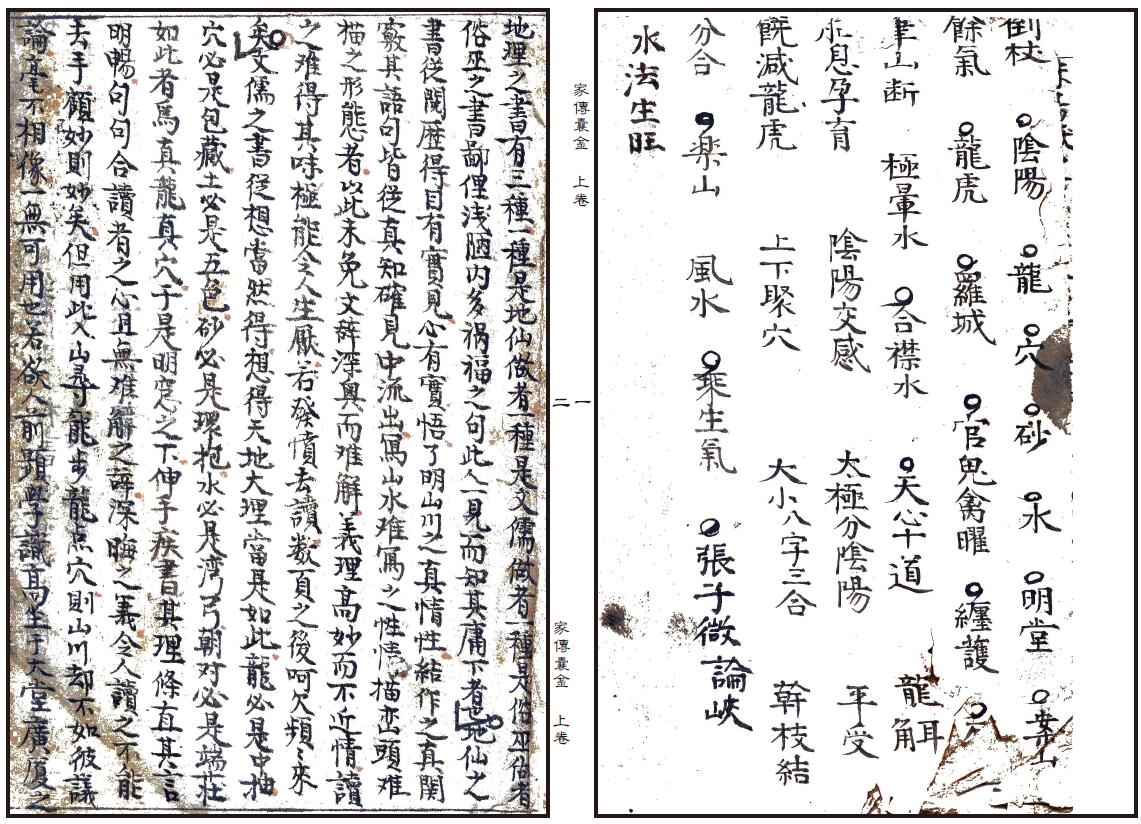 倒杖 陰陽 龍 穴 砂 水 明堂 案山
餘氣 龍虎 羅城 官鬼禽曜 纏護
山斷 極暈水 合襟水 天心十道 龍耳角
息孕育 陰陽交感 太極分陰陽 平受
饒減龍虎 上下聚穴 大小八字三合 幹枝結
分合 楽山 風水 乘生氣 張子微論峽
水法生旺
家傳囊金 上卷
一
二
家傳囊金 上卷
地理之書有三種一種是地仙做者一種是文儒做者一種是俗巫做者
俗巫之書鄙俚浅陋内多禍福之句此人一見而知其庸下者也地仙之
書従閱歷得目有實見心有實悟了明山川之真情性結作之真関
竅其語句皆従真知確見中流出寫山水难寫之性情描巒頭难
描之形態者以此未免文辞深奥而难解義理高妙而不近情讀
之难得其味極能令人生厭若發憤去讀数頁之後呵欠頻〻來
矣文儒之書従想當然得想得天地大理當是如此龍必是中抽
穴必是包藏土必是五色砂必是環抱水必是湾弓朝对必是端莊
如此者為真龍真穴于是明窓之下伸手疾書其理條直其言
明暢句句合讀者之心且無难解之辞深晦之義令人讀之不能
去手顧妙則妙矣但用此入山尋龍步龍点穴則山川却不如彼議
論毫不相像一無可用也若欲人前顕學識高坐于大堂廣厦之